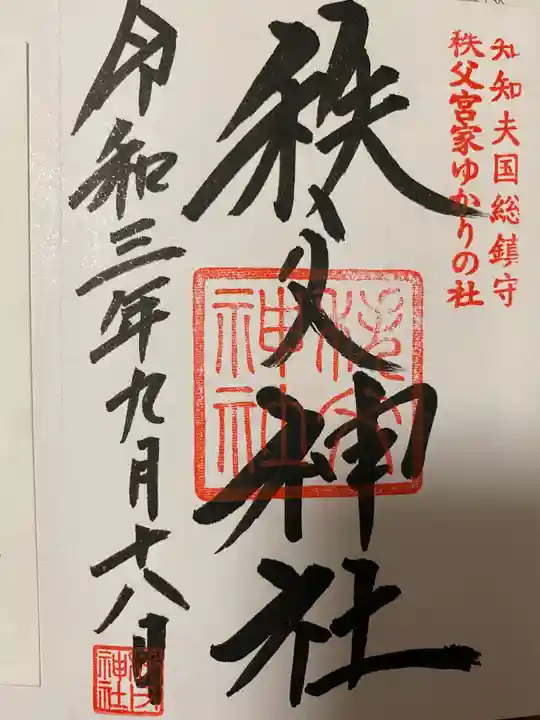 知知夫国総鎮守
秩父宮家ゆかりの社
秩父神社
令和三年九月十八日
秩父
神社
神社